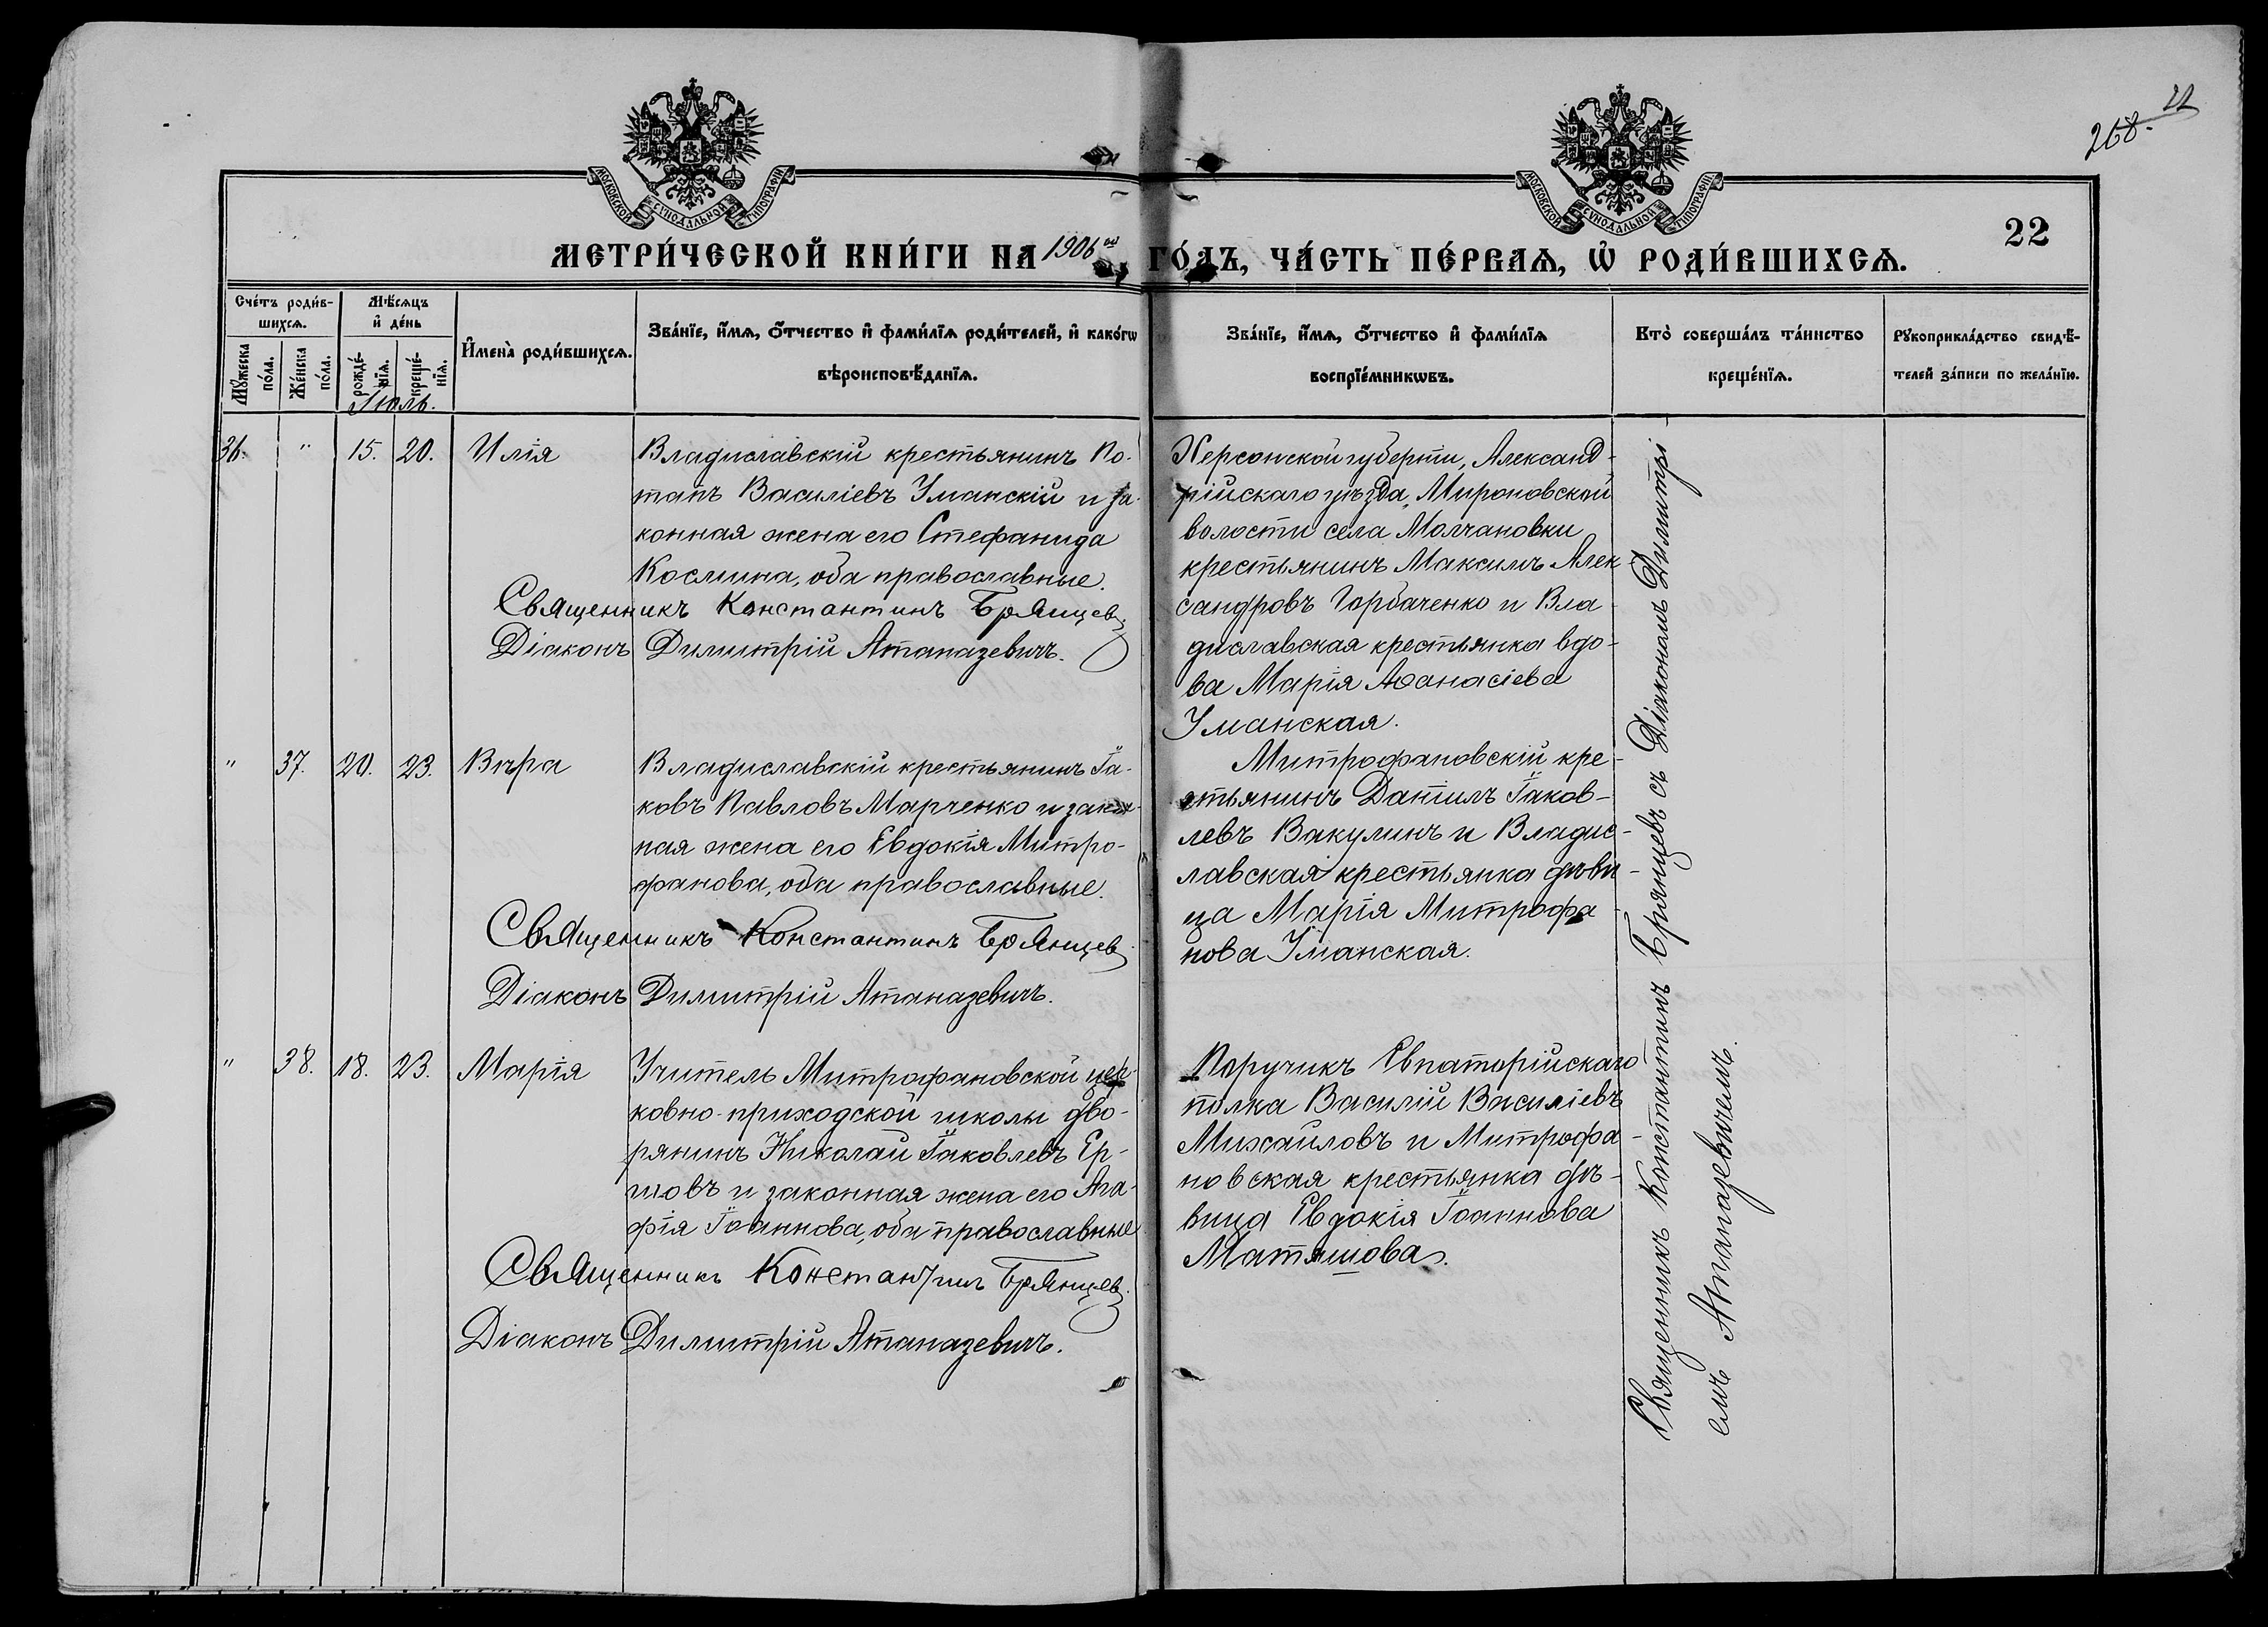 268. 22
МОСКОВСКОЙ СѴНОДАЛЬНОЙ ТИПОГРАФІИ
МОСКОВСКОЙ СѴНОДАЛЬНОЙ ТИПОГРАФІИ
22
МЕТРИ́ЧЕСКОЙ КНИ́ГИ НА 1906ой ГО́ДЪ, ЧА́СТЬ ПЕ́РВАѦ, Ѡ҆ РОДИ́ВШИХСѦ.
Сче́тъ роди́в-
шихсѧ.
Мꙋ́жеска по́ла.
Же́нска по́ла.
Мѣ́сѧцъ
и҆ де́нь
рожде́-нїѧ.
креще́-нїѧ.
И҆мена̀ роди́вшихсѧ.
Зва́нїе, и҆́мѧ, ѻ҆́тчество и҆ фами́лїѧ роди́телей, и҆ како́гѡ
вѣроисповѣ́данїѧ.
Зва́нїе, и҆́мѧ, ѻ҆́тчество и҆ фами́лїѧ
воспрїе́мникѡвъ.
Кто̀ соверша́лъ та́инство
креще́нїѧ.
Рꙋкоприкла́дство свидѣ́-
телей за́писи по жела́нїю.
Іюль.
36. " 15. 20. Илія
Владиславскій крестьянинъ По-
тапъ Василіевъ Уманскій и за-
конная жена его Стефанида
Космина, оба православные.
Священникъ Константинъ Брянцевъ
Діаконъ Димитрій Атаназевичъ.
Херсонской губерніи, Александ-
рійскаго уѣзда, Мироновской
волости села Молчановки
крестьянинъ Максимъ Алек-
сандровъ Горбаченко и Вла-
диславская крестьянка вдо-
ва Марія Аѳанасіева
Уманская.
" 37. 20. 23. Вѣра
Владиславскій крестьянинъ Іа-
ковъ Павловъ Марченко и закон-
ная жена его Евдокія Митро-
фанова, оба православные.
Священникъ Константинъ Брянцевъ
Діаконъ Димитрій Атаназевичъ.
Митрофановскій кре-
стьянинъ Даніилъ Іаков-
левъ Вакулинъ и Владис-
лавская крестьянка дѣви-
ца Марія Митрофа-
нова Уманская.
" 38. 18. 23. Марія
Учитель Митрофановской цер-
ковно-приходской школы дво-
рянинъ Николай Іаковлевъ Ер-
шовъ и законная жена его Ага-
фія Іоаннова, оба православные
Священникъ Константинъ Брянцевъ.
Діаконъ Димитрій Атаназевичъ.
Поручикъ Евпаторійскаго
полка Василій Василіевъ
Михайловъ и Митрофа-
новская крестьянка дѣ-
вица Евдокія Іоаннова
Матяшова.
Священникъ Константинъ Брянцевъ съ Діакономъ Димитрі-
емъ Атаназевичемъ.